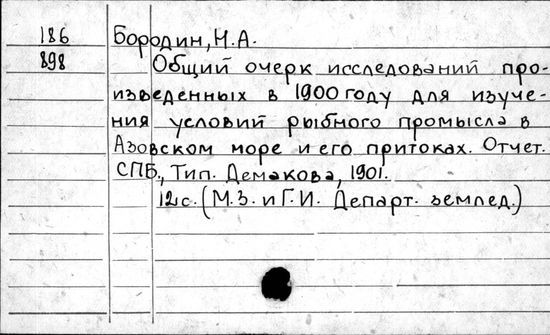 186 Бородин, Н.А.
898 Общий очерк исследований про-
изведенных в 1900 году для изуче-
ния условий рыбного промысла в
Азовском море и его притоках. Отчет.
СПБ., Тип. Демакова, 1901.
12с. (М.З. и Г.И. Департ. землед.)